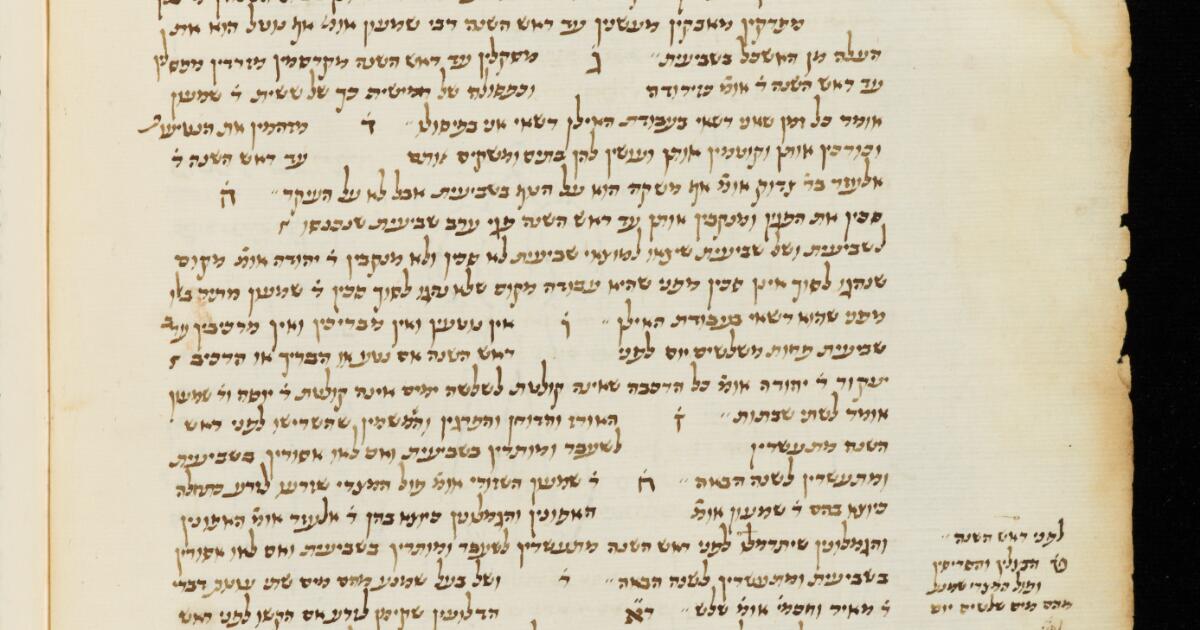 מפרקין מאבקין מעשנין עד ראש השנה רבי שמעון אומ' אף נוטל הוא את
העלה מן האשכל בשביעית ג מסקלין עד ראש השנה מקרסמין מזרדין מפסלין
עד ראש השנה ר' אומ' כזירודה וכפסולה של חמישית כך של ששית ר' שמעון
אומר כל זמן שאני רשאי בעבודת האילן רשאי אני בפיסולו ד מזהמין את הנטיעו'
וכורכין אותן וקוטמין אותן ועושין להן בתים ומשקים אותם עד ראש השנה ר'
אלעזר בר' צדוק אומ' אף משקה הוא על הנוף בשביעית אבל לא על העיקר ה
סכין את הפגין ומנקבין אותן עד ראש השנה פגי ערב שביעית שנכנסו ל
לשביעית ושל שביעית שיצאו למוצאי שביעית לא סכין ולא מנקבין ר' יהודה אומ' מקום
שנהגו לסוך אינן סכין מפני שהיא עבודה מקום שלא נהגו לסוך סכין ר' שמעון מתיר
מפני שהוא רשאי בעבודת האילן ו אין נוטעין ואין מבריכין ואין מרכיבין ערב
שביעית פחות משלשים יום לפני ראש השנה אם נטע או הבריך או הרכיב
יעקור ר' יהודה אומ' כל הרכבה שאינה קולטת לשלשה ימים אינה קולטת ר' יוסה ור' שמעון
אומר לשתי שבתות ז האורז והדוחן והפרגין והשמשמין שהשרישו לפני ראש
השנה מתעשרין לשעבר ומותרין בשביעית ואם לאו אסורין בשביעית
ומתעשרין לשנה הבאה ח ר' שמעון השזורי אומ' פול המצרי שזרעו לזרע בתחלה
כיוצא בהם ר' שמעון אומ' האפונין והגמלונין כיוצא בהן ר' אלעזר אומ' האפונין
והגמלונין שיתרמלו לפני ראש השנה מתעשרין לשעבר ומותרין בשביעית ואם לאו אסורין
בשביעית ומתעשרין לשנה הבאה ושל בעל שמנע מהם מים שתי עונות דברי
ר' מאיר וחכמי' אומ' שלש הדלועין שקיימן לזרע אם הקשו לפני ראש
לפני ראש השנה
הבצלין והסריסין
ופול המצרי שמנע
מהם מים שלשים יום